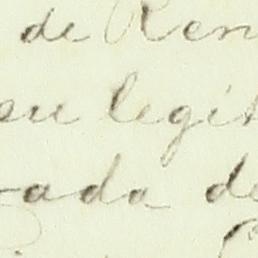 de Ren
eu legit
ada de